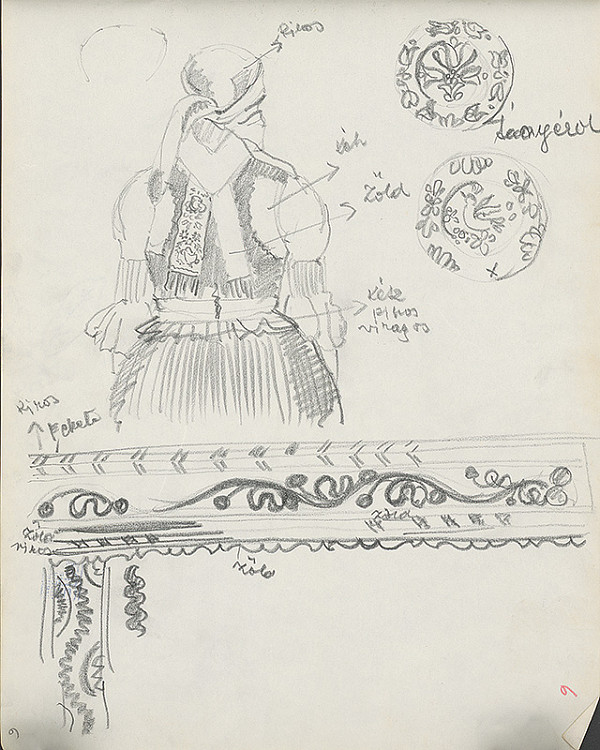 Piros
tányérok
kék
Zöld
kék
piros
virágos
Piros
Fekete
Zöld
Zöld
piros
Zöld
9
9